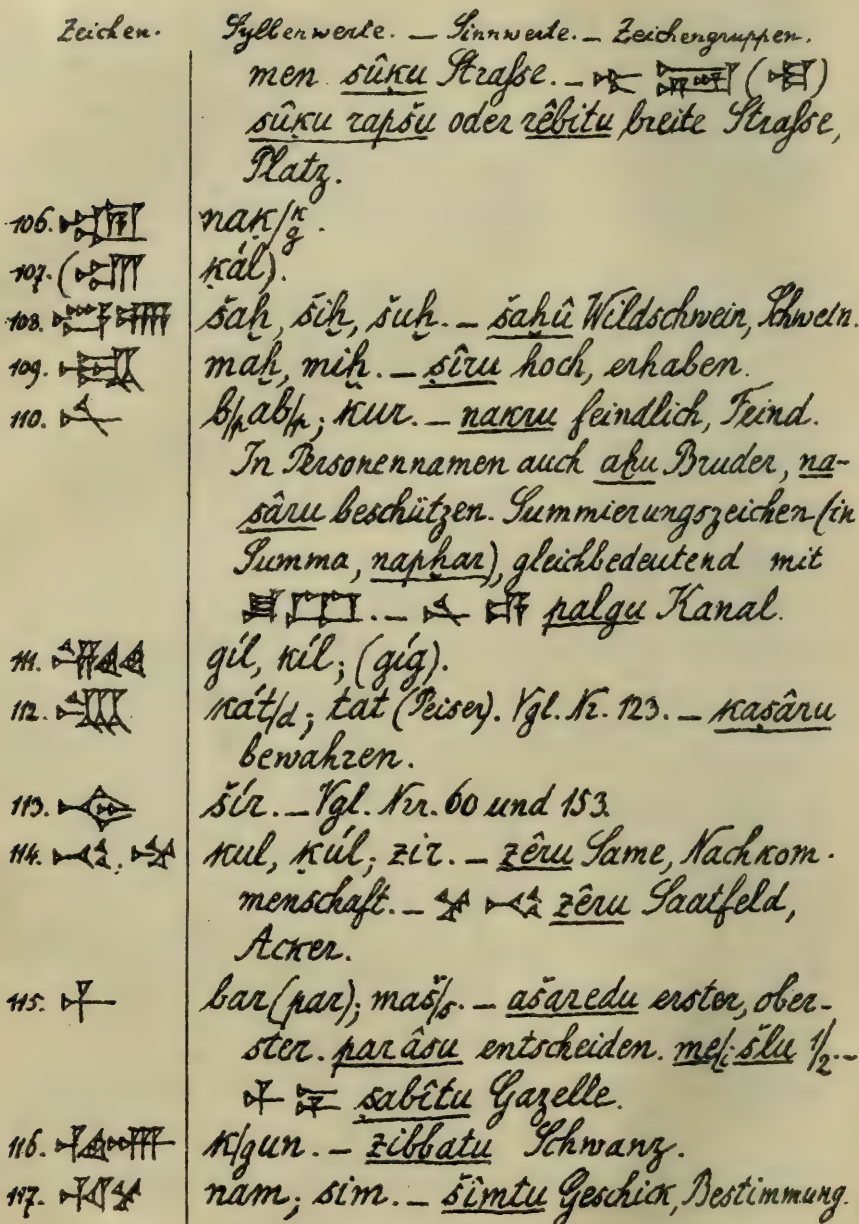 Zeichen. Sylbenwerte. — Sinnwerte. — Zeichengruppen.
men sûḳu Straße. — ( )
sûḳu rapšu oder rêbitu breite Straße,
Platz.
106. naḳ/k/g.
107. ( ḳál).
108. šaḫ, šiḫ, šuḫ. — šaḫû Wildschwein, Schwein.
109. maḫ, miḫ. — ṣîru hoch, erhaben.
110. b/pab/p; kur. — nakru feindlich, Feind.
In Personennamen auch aḫu Bruder, na-
ṣâru beschützen. Summierungszeichen (in
Summa, napḫar), gleichbedeutend mit
. — palgu Kanal.
111. gíl, kíl; (gíg).
112. kát/d; tat (Peiser). Vgl. Nr. 123. — kaṣâru
bewahren.
113. šír. — Vgl. Nrr. 60 und 153.
114. , kul, ḳúl; zir. — zêru Same, Nachkom-
menschaft. — zêru Saatfeld,
Acker.
115. bar (par); maš/s. — ašaredu erster, ober-
ster. parâsu entscheiden. me/išlu 1/2. —
ṣabîtu Gazelle.
116. k/gun. — zibbatu Schwanz.
117. nam; sim. — šîmtu Geschick, Bestimmung.